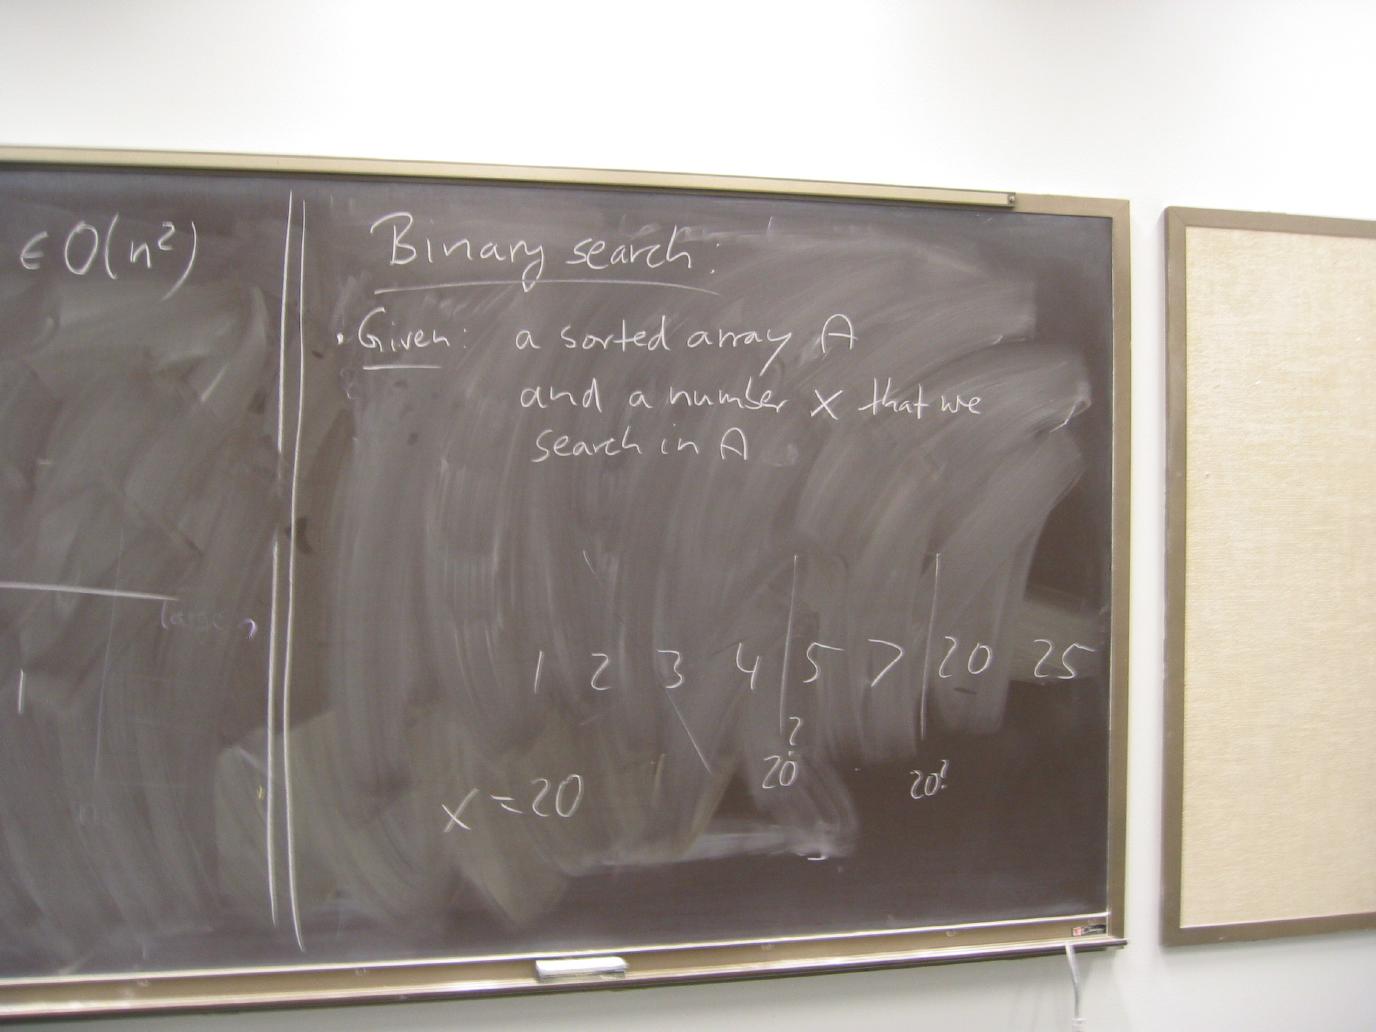 ∈ O(n²)
Binary search:
• Given: a sorted array A
and a number x that we
search in A
large
1
1 2 3 4 5 7 20 25
20? 20?
x = 20